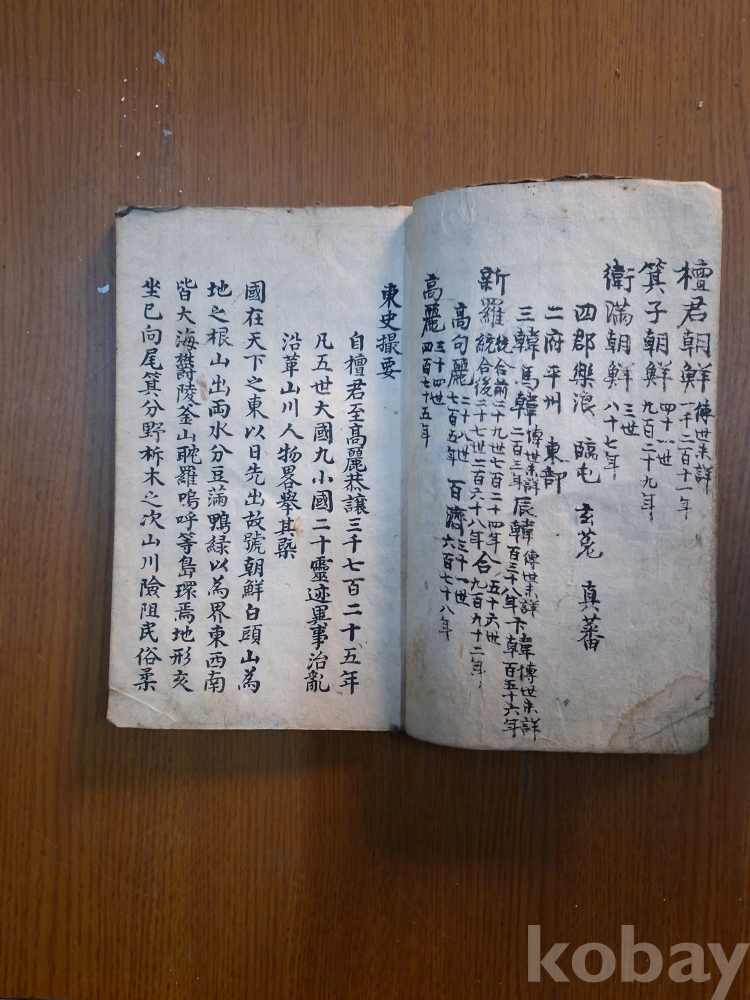 檀君朝鮮 傳世未詳 一千二百十一年
箕子朝鮮 四十一世 九百二十九年
衛滿朝鮮 三世 八十七年
四郡樂浪 臨屯 玄菟 真蕃
二府平州 東部
三韓馬韓 傳世未詳 二百三年 辰韓 傳世未詳 百三十八年 卞韓 傳世未詳 百五十六年
新羅 統合前二十九世七百二十四年 統合後二十七世二百六十八年 合 五十六世 九百九十二年
高句麗 二十八世 七百五年 百濟 三十一世 六百七十八年
高麗 三十四世 四百七十五年
東史撮要
自檀君至高麗恭讓三千七百二十五年
凡五世大國九小國二十靈迹異事治亂
沿革山川人物畧舉其槩
國在天下之東以日先出故號朝鮮白頭山為
地之根山出兩水分豆滿鴨緑以為界東西南
皆大海欝陵釜山耽羅嗚呼等島環焉地形亥
坐巳向尾箕分野析木之次山川險阻民俗柔
kobay